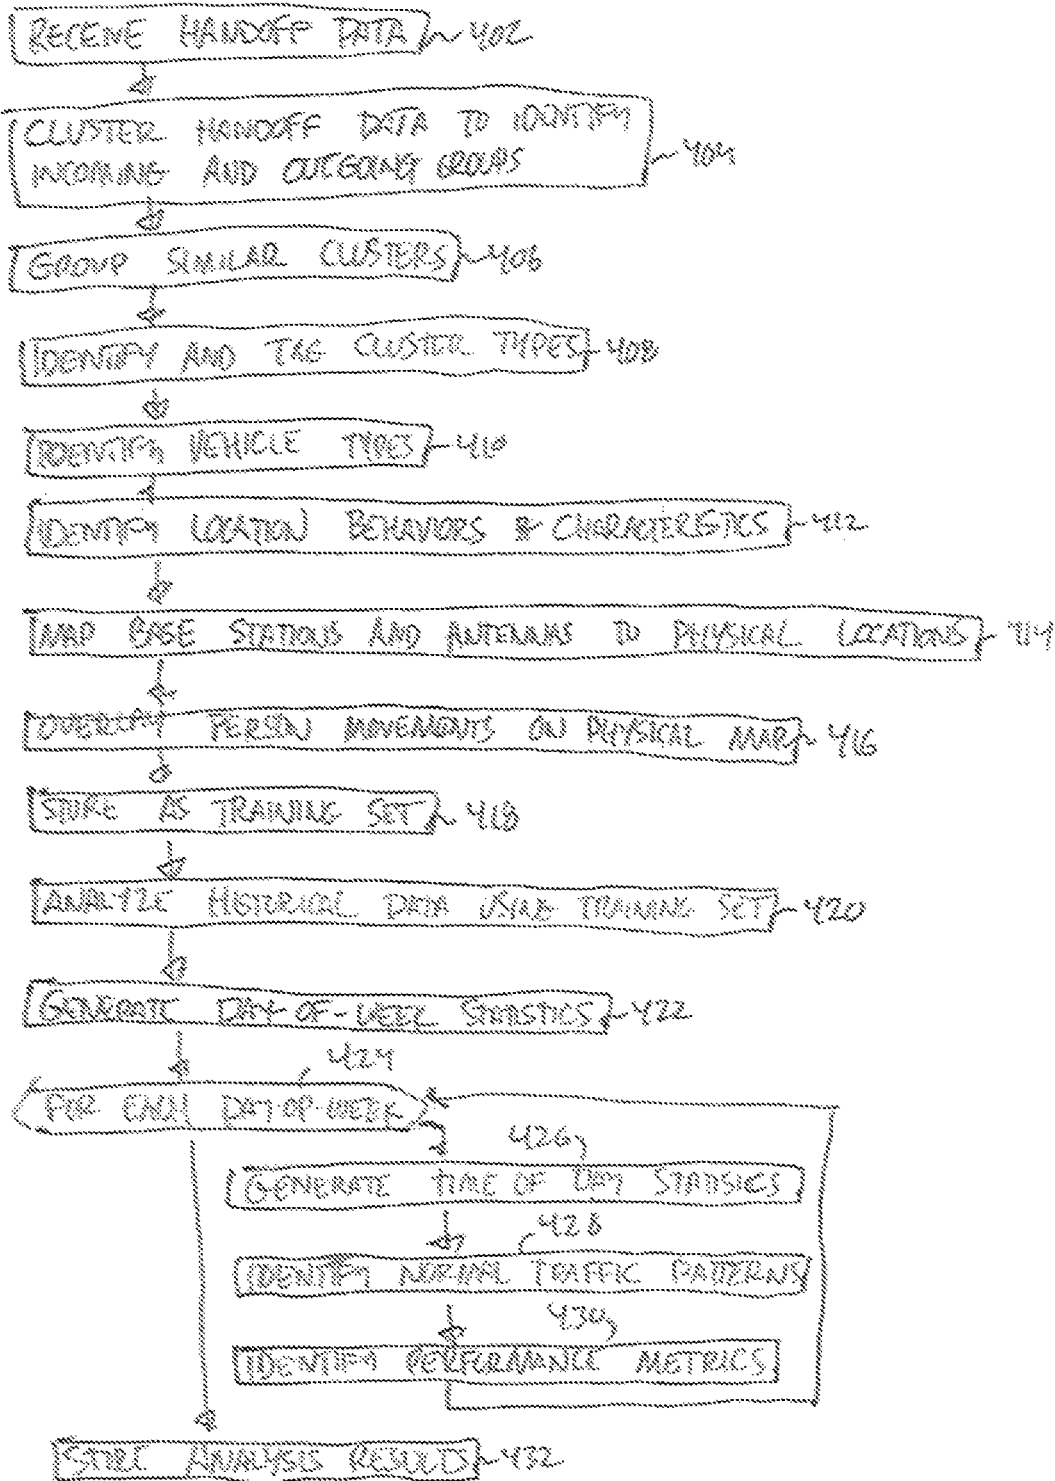 RECEIVE HANDOFF DATA 402
CLUSTER HANDOFF DATA TO IDENTIFY
INCOMING AND OUTGOING GROUPS 404
GROUP SIMILAR CLUSTERS 406
IDENTIFY AND TAG CLUSTER TYPES 408
IDENTIFY VEHICLE TYPES 410
IDENTIFY LOCATION BEHAVIORS & CHARACTERISTICS 412
MAP BASE STATIONS AND ANTENNAS TO PHYSICAL LOCATIONS 414
OVERLAY PERSON MOVEMENTS ON PHYSICAL MAP 416
STORE AS TRAINING SET 418
ANALYZE HISTORICAL DATA USING TRAINING SET 420
GENERATE DAY-OF-WEEK STATISTICS 422
424
FOR EACH DAY-OF-WEEK
426
GENERATE TIME OF DAY STATISICS
428
IDENTIFY NORMAL TRAFFIC PATTERNS
430
IDENTIFY PERFORMANCE METRICS
STORE ANALYSIS RESULTS 432